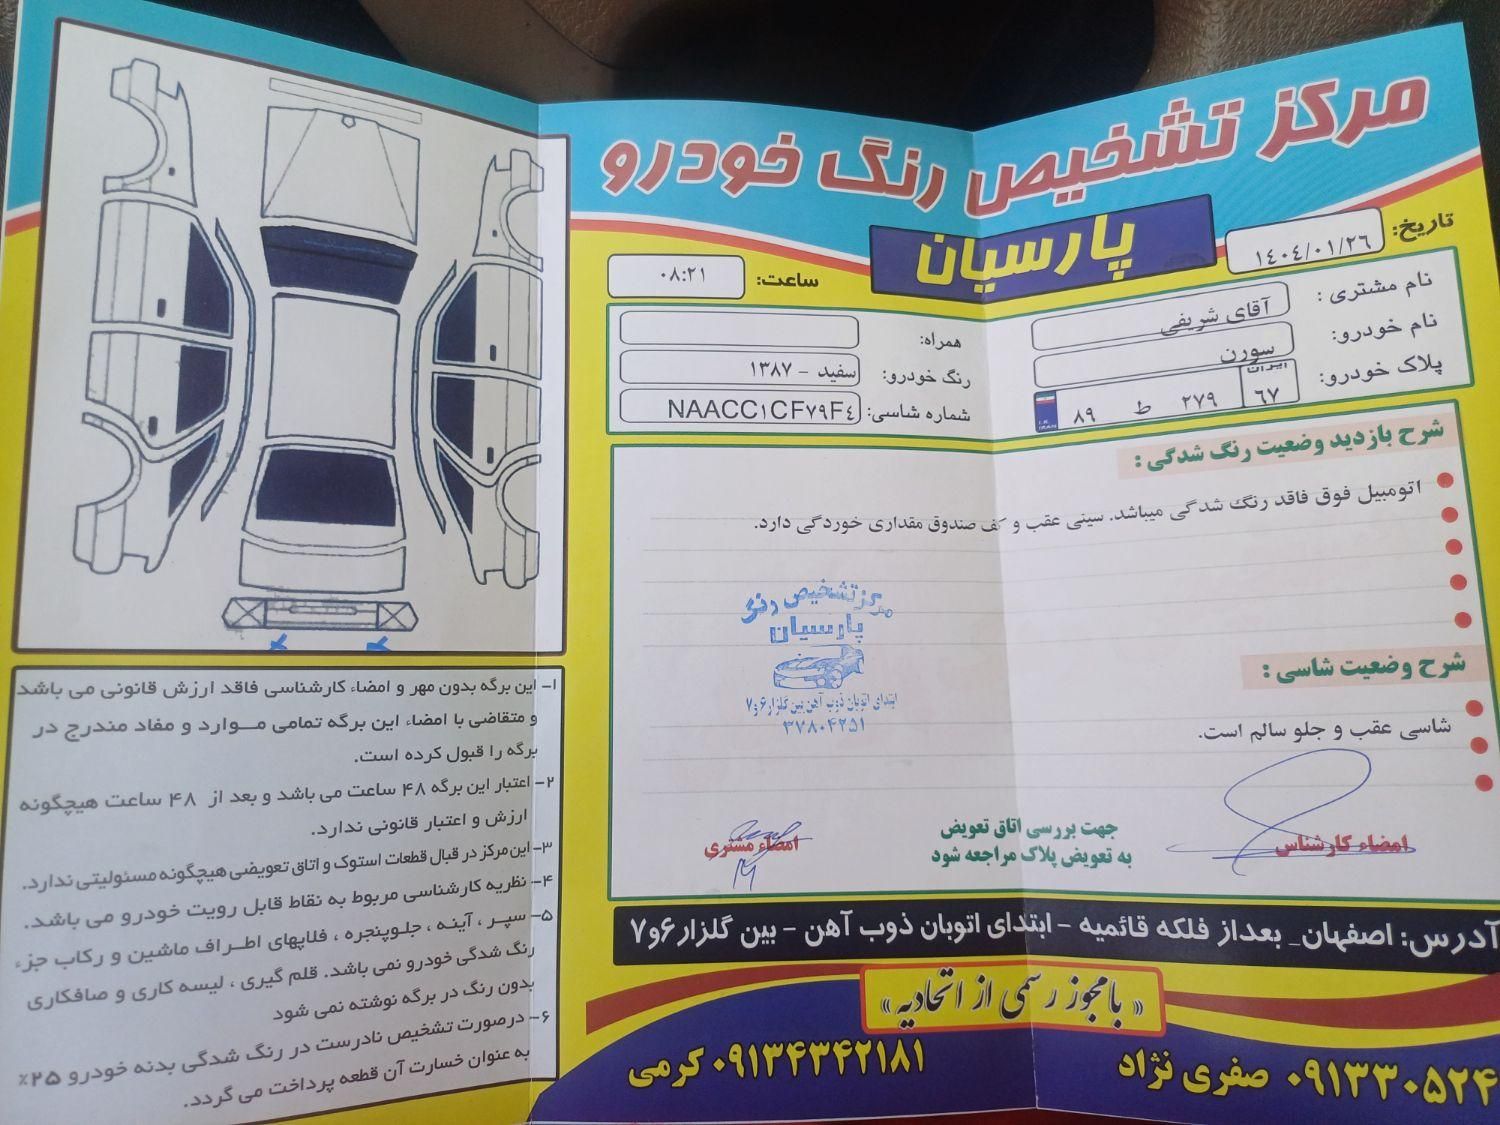 مرکز تشخیص رنگ خودرو
پارسیان
تاریخ: ۱٤۰٤/۰۱/۲۶
ساعت: ۰۸:۲۱
نام مشتری: آقای شریفی
نام خودرو: سورن
پلاک خودرو: ایران ۶۷ ۲۷۹ ط ۸۹
I.R. IRAN
همراه:
رنگ خودرو: سفید - ۱۳۸۷
شماره شاسی: NAACC۱CF۷۹F٤
شرح بازدید وضعیت رنگ شدگی :
اتومبیل فوق فاقد رنگ شدگی میباشد. سینی عقب و کف صندوق مقداری خوردگی دارد.
مرکز تشخیص رنگ
پارسیان
ابتدای اتوبان ذوب آهن بین گلزار ۶ و ۷
۳۷۸۰۴۲۵۱
شرح وضعیت شاسی :
شاسی عقب و جلو سالم است.
امضاء کارشناس
جهت بررسی اتاق تعویض
به تعویض پلاک مراجعه شود
امضاء مشتری
آدرس: اصفهان_ بعداز فلکه قائمیه - ابتدای اتوبان ذوب آهن - بین گلزار ۶و۷
«بامجوز رسمی از اتحادیه»
۰۹۱۳۳۰۵۲۴ صفری نژاد
۰۹۱۳۴۳۴۲۱۸۱ کرمی
۱- این برگه بدون مهر و امضاء کارشناسی فاقد ارزش قانونی می باشد
و متقاضی با امضاء این برگه تمامی مـوارد و مفاد مندرج در
برگه را قبول کرده است.
۲- اعتبار این برگه ۴۸ ساعت می باشد و بعد از ۴۸ ساعت هیچگونه
ارزش و اعتبار قانونی ندارد.
۳- این مرکز در قبال قطعات استوک و اتاق تعویضی هیچگونه مسئولیتی ندارد.
۴- نظریه کارشناسی مربوط به نقاط قابل رویت خودرو می باشد.
۵- سپر ، آینه ، جلوپنجره ، فلاپهای اطراف ماشین و رکاب جزء
رنگ شدگی خودرو نمی باشد. قلم گیری ، لیسه کاری و صافکاری
بدون رنگ در برگه نوشته نمی شود
۶- درصورت تشخیص نادرست در رنگ شدگی بدنه خودرو ۲۵٪
به عنوان خسارت آن قطعه پرداخت می گردد.